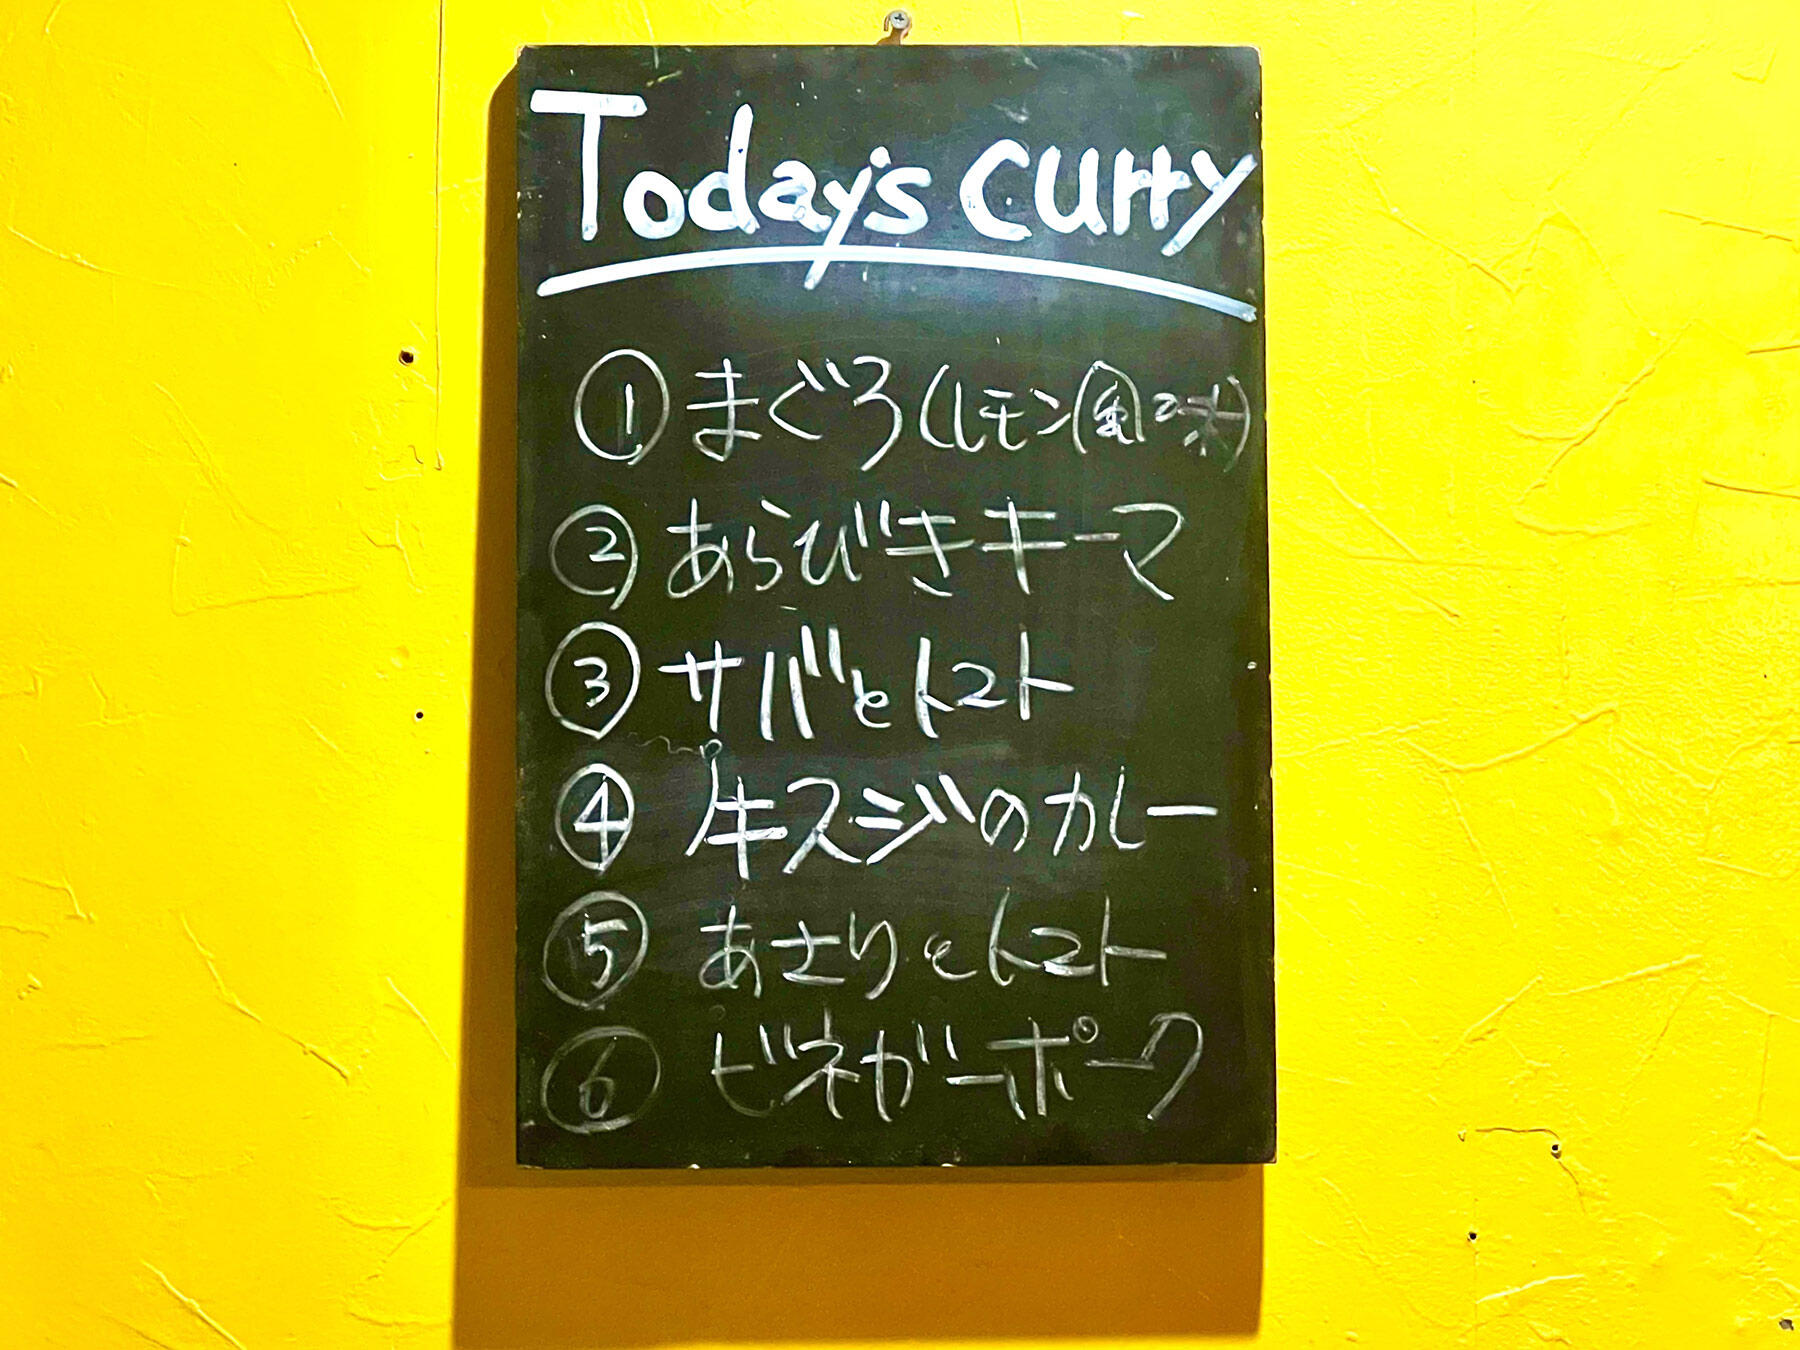 Today's curry
① まぐろ(レモン風味)
② あらびきキーマ
③ サバとトマト
④ 牛スジのカレー
⑤ あさりとトマト
⑥ ビネガーポーク